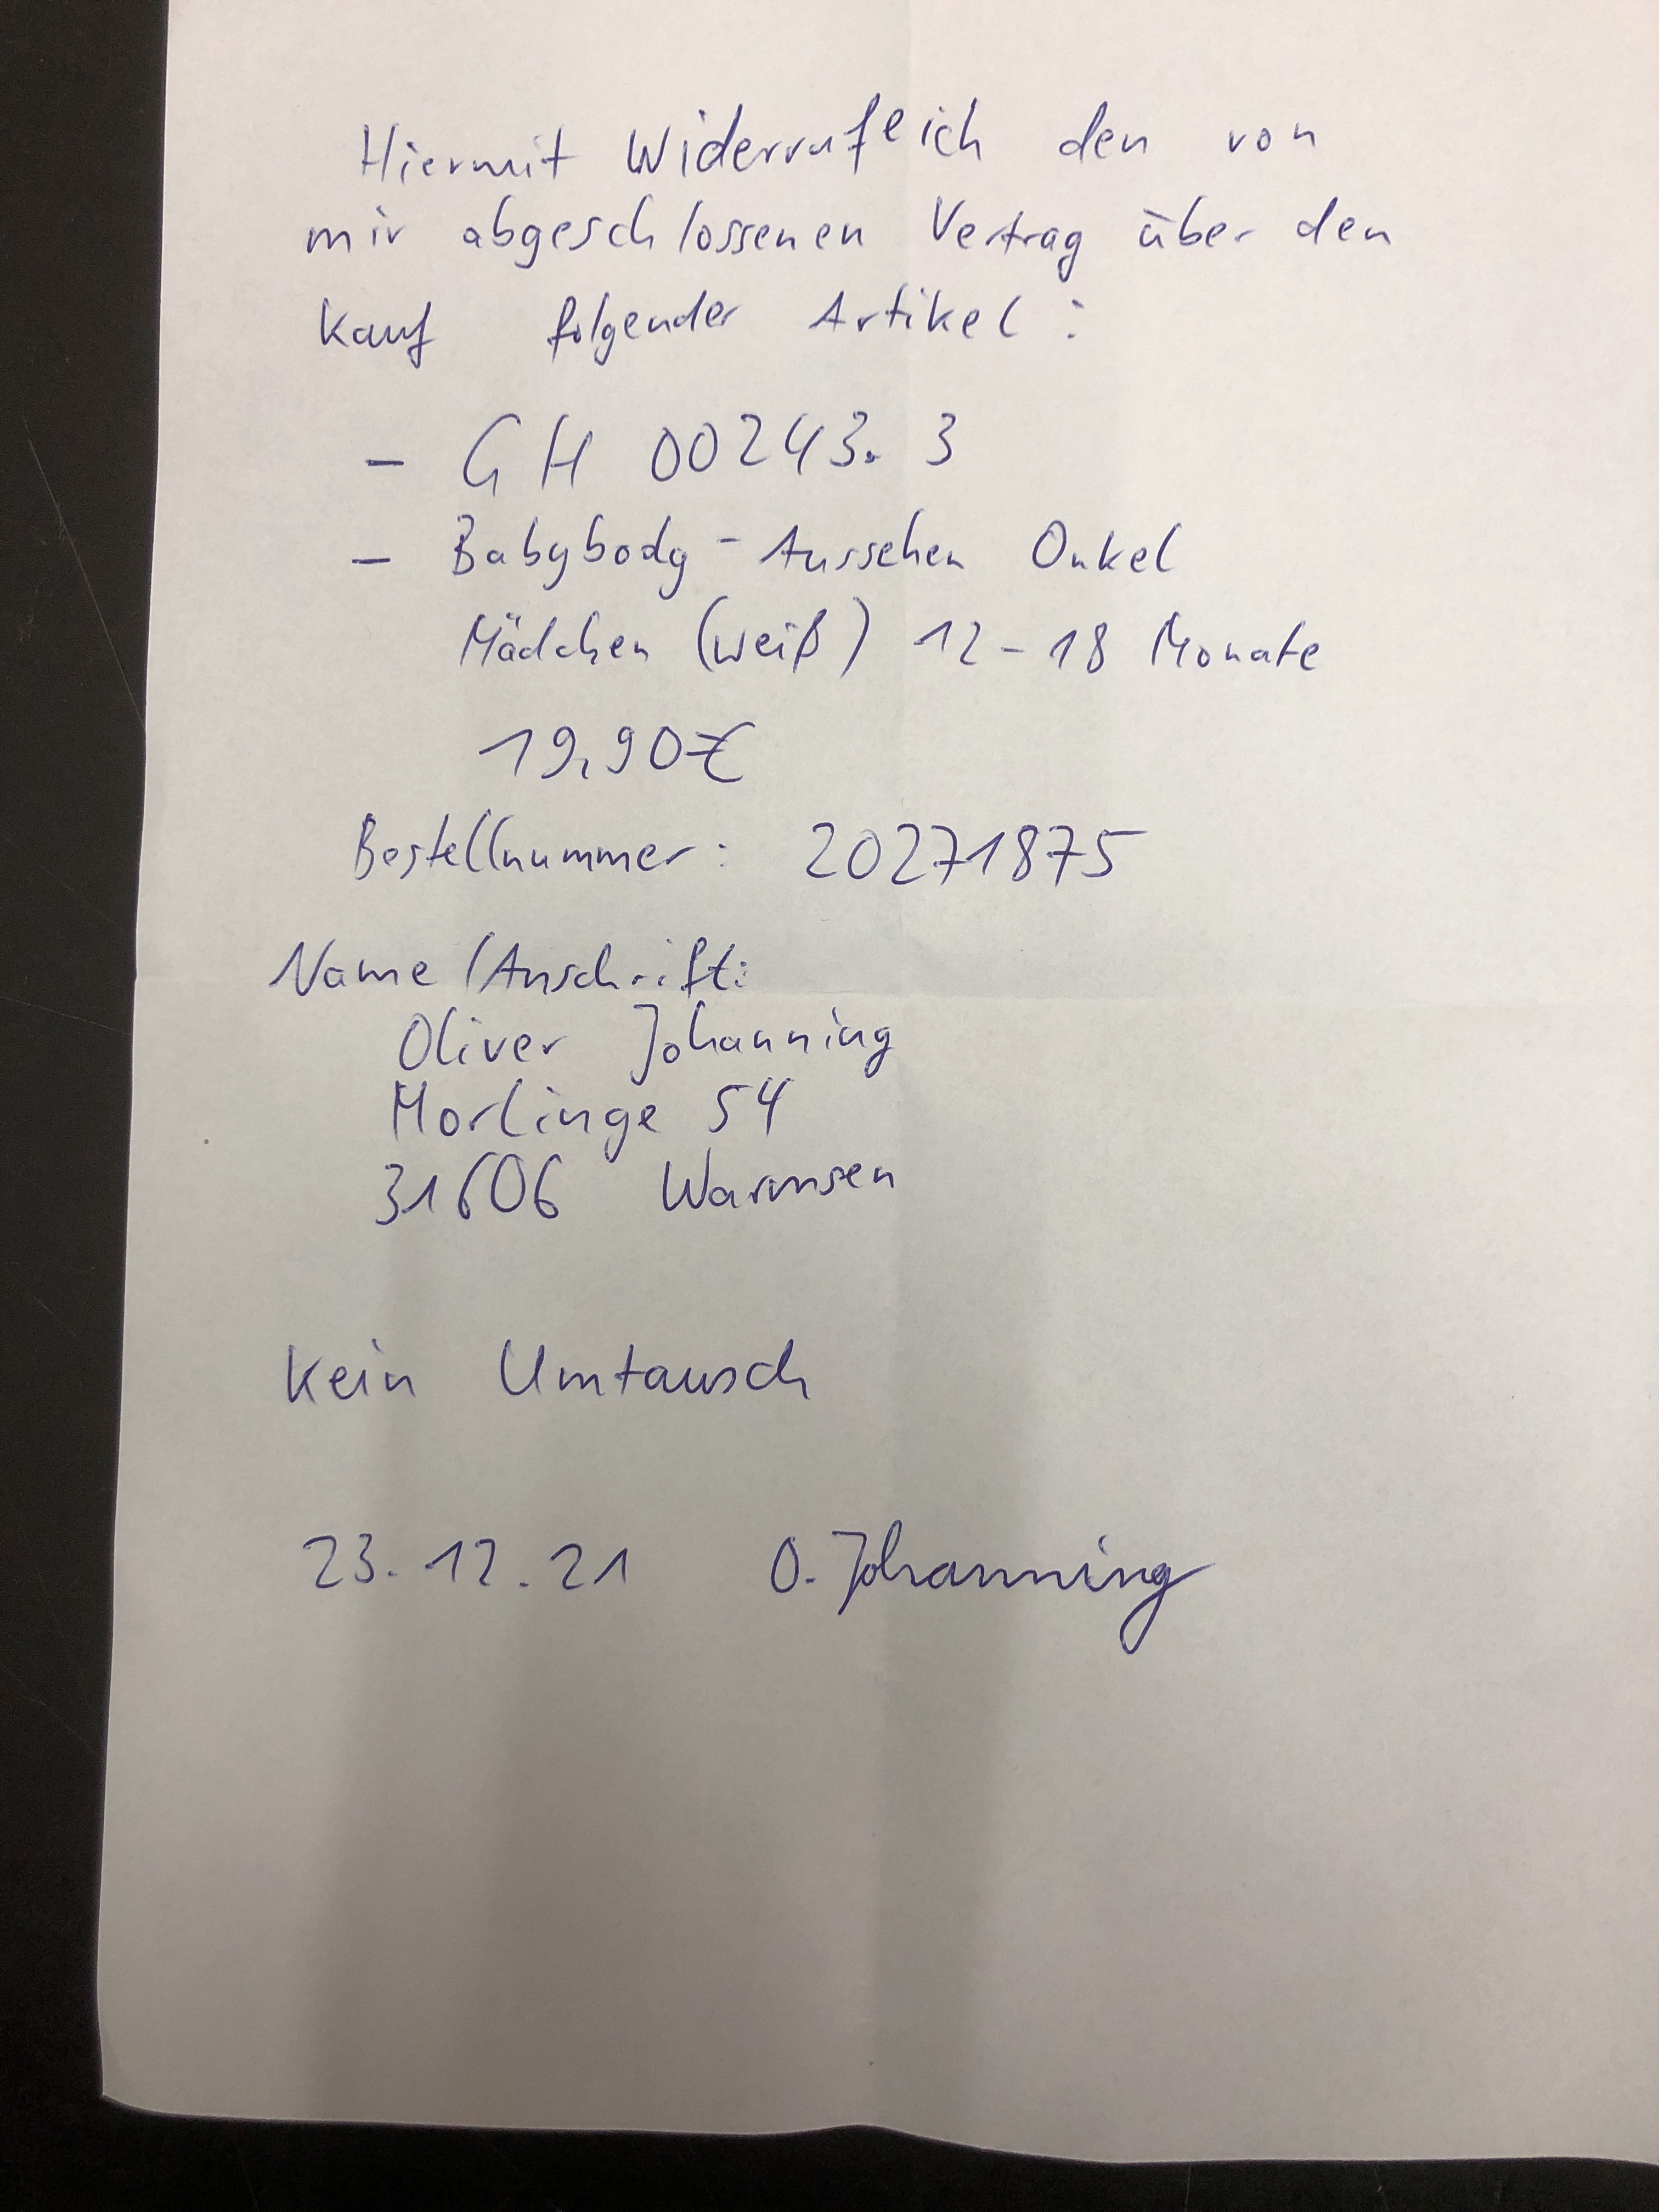 Hiermit Widerrufe ich den von
mir abgeschlossenen Vertrag über den
Kauf folgender Artikel:
- GH 00243.3
- Babybody - Aussehen Onkel
Mädchen (weiß) 12-18 Monate
19,90€
Bestellnummer: 20271875
Name / Anschrift:
Oliver Johanning
Morlinge 54
31606 Warmsen
Kein Umtausch
23.12.21 O. Johanning